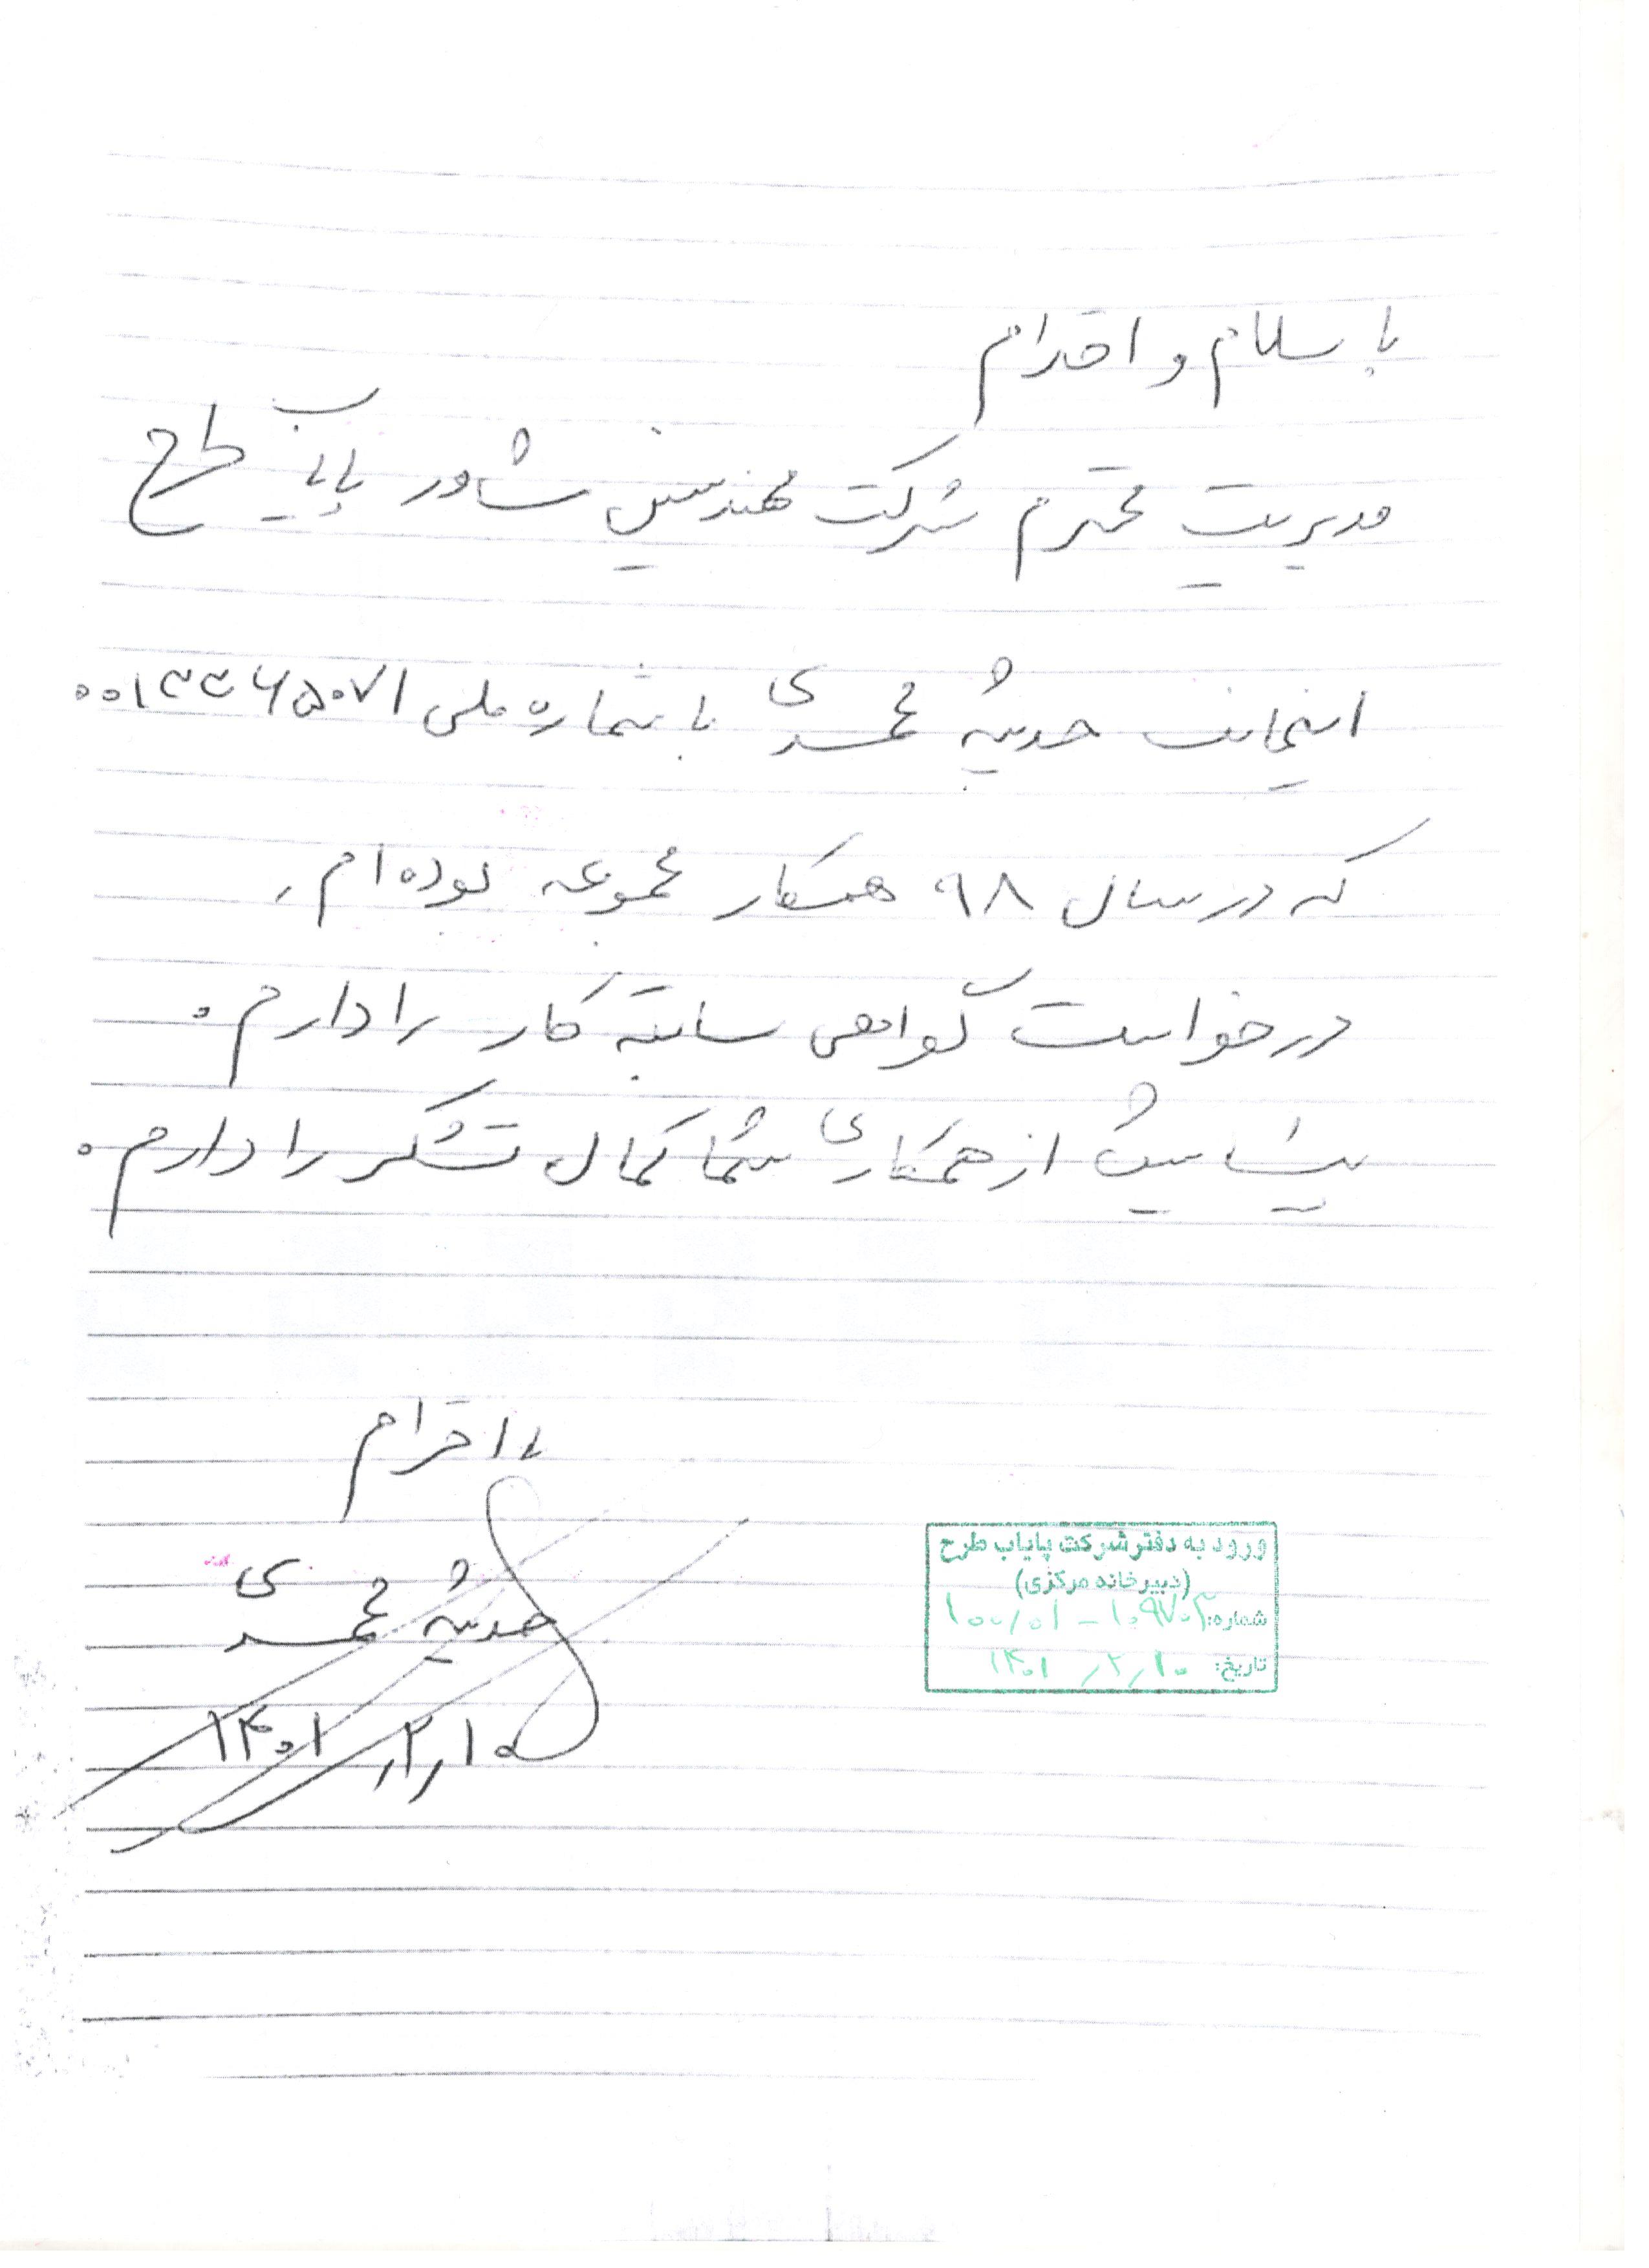 با سلام و احترام
مدیریت محترم شرکت مهندسین مشاور پایاب طرح
اینجانب حدیثه محمدی با شماره ملی ۰۰۱۳۳۶۵۰۷۱
که در سال ۹۸ همکار مجموعه بوده ام،
درخواست گواهی سابقه کار را دارم.
پیشاپیش از همکاری شما کمال تشکر را دارم.
با احترام
حدیثه محمدی
۱۴۰۱,۲,۱۰
ورود به دفتر شرکت پایاب طرح
(دبیرخانه مرکزی)
شماره: ۱۰۰/۰۱-۱۰۹۷۰۳
تاریخ: ۱۴۰۱,۲,۱۰